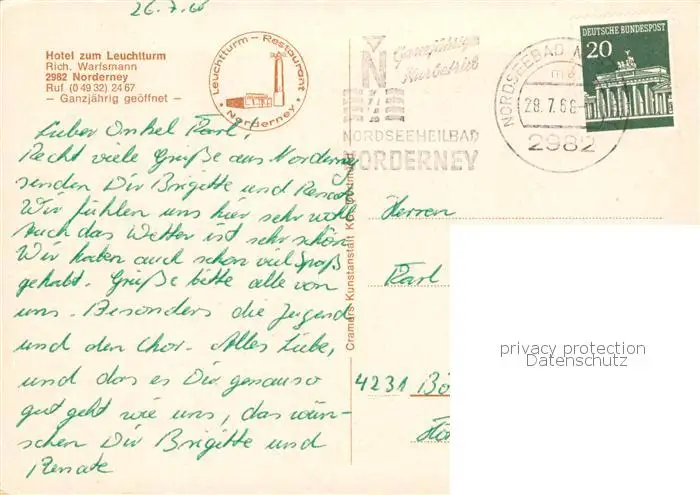 26.7.68
Hotel zum Leuchtturm
Rich. Warfsmann
2982 Norderney
Ruf (0 49 32) 24 67
– Ganzjährig geöffnet –
Leuchtturm – Restaurant
• Norderney •
Ganzjähriger
Kurbetrieb
N
NORDSEEHEILBAD
NORDERNEY
NORDSEEBAD N
28.7.68
2982
DEUTSCHE BUNDESPOST
20
Lieber Onkel Karl,
Recht viele Grüße aus Norderney
senden Dir Brigitte und Renate
Wir fühlen uns hier sehr wohl
Auch das Wetter ist sehr schön.
Wir haben auch schon viel Spaß
gehabt. Grüße bitte alle von
uns. Besonders die Jugend
und den Chor. Alles Liebe,
und das es Dir genauso
gut geht wie uns, das wün-
schen Dir Brigitte und
Renate
Cramers Kunstanstalt KG Dortmund
Herren
Karl
4231 Bö
privacy protection
Datenschutz